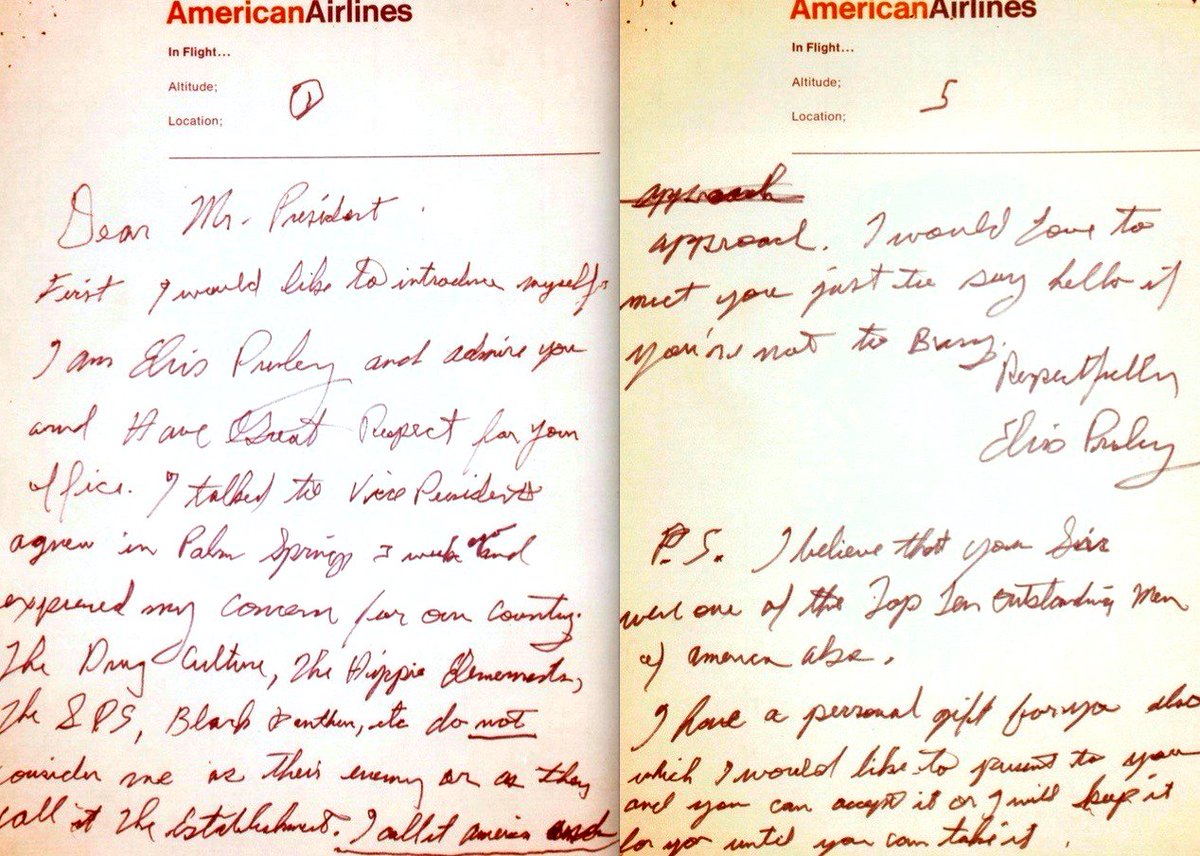 AmericanAirlines
In Flight...
Altitude;
Location;
1
Dear Mr. President.
First I would like to introduce myself.
I am Elvis Presley and admire you
and Have Great Respect for your
office. I talked to Vice President
agnew in Palm Springs 3 weeks ago and
expressed my concern for our country.
The Drug Culture, The Hippie Elements,
The SDS, Black Panthers, etc do not
consider me as their enemy or as they
call it The Establishment. I call it america and
AmericanAirlines
In Flight...
Altitude;
Location;
5
approach
approach. I would love to
meet you just to say hello if
you're not to Busy.
Respectfully
Elvis Presley
P.S. I believe that you Sir
were one of the Top Ten Outstanding Men
of america also.
I have a personal gift for you also
which I would like to present to you
and you can accept it or I will keep it
for you until you can take it.